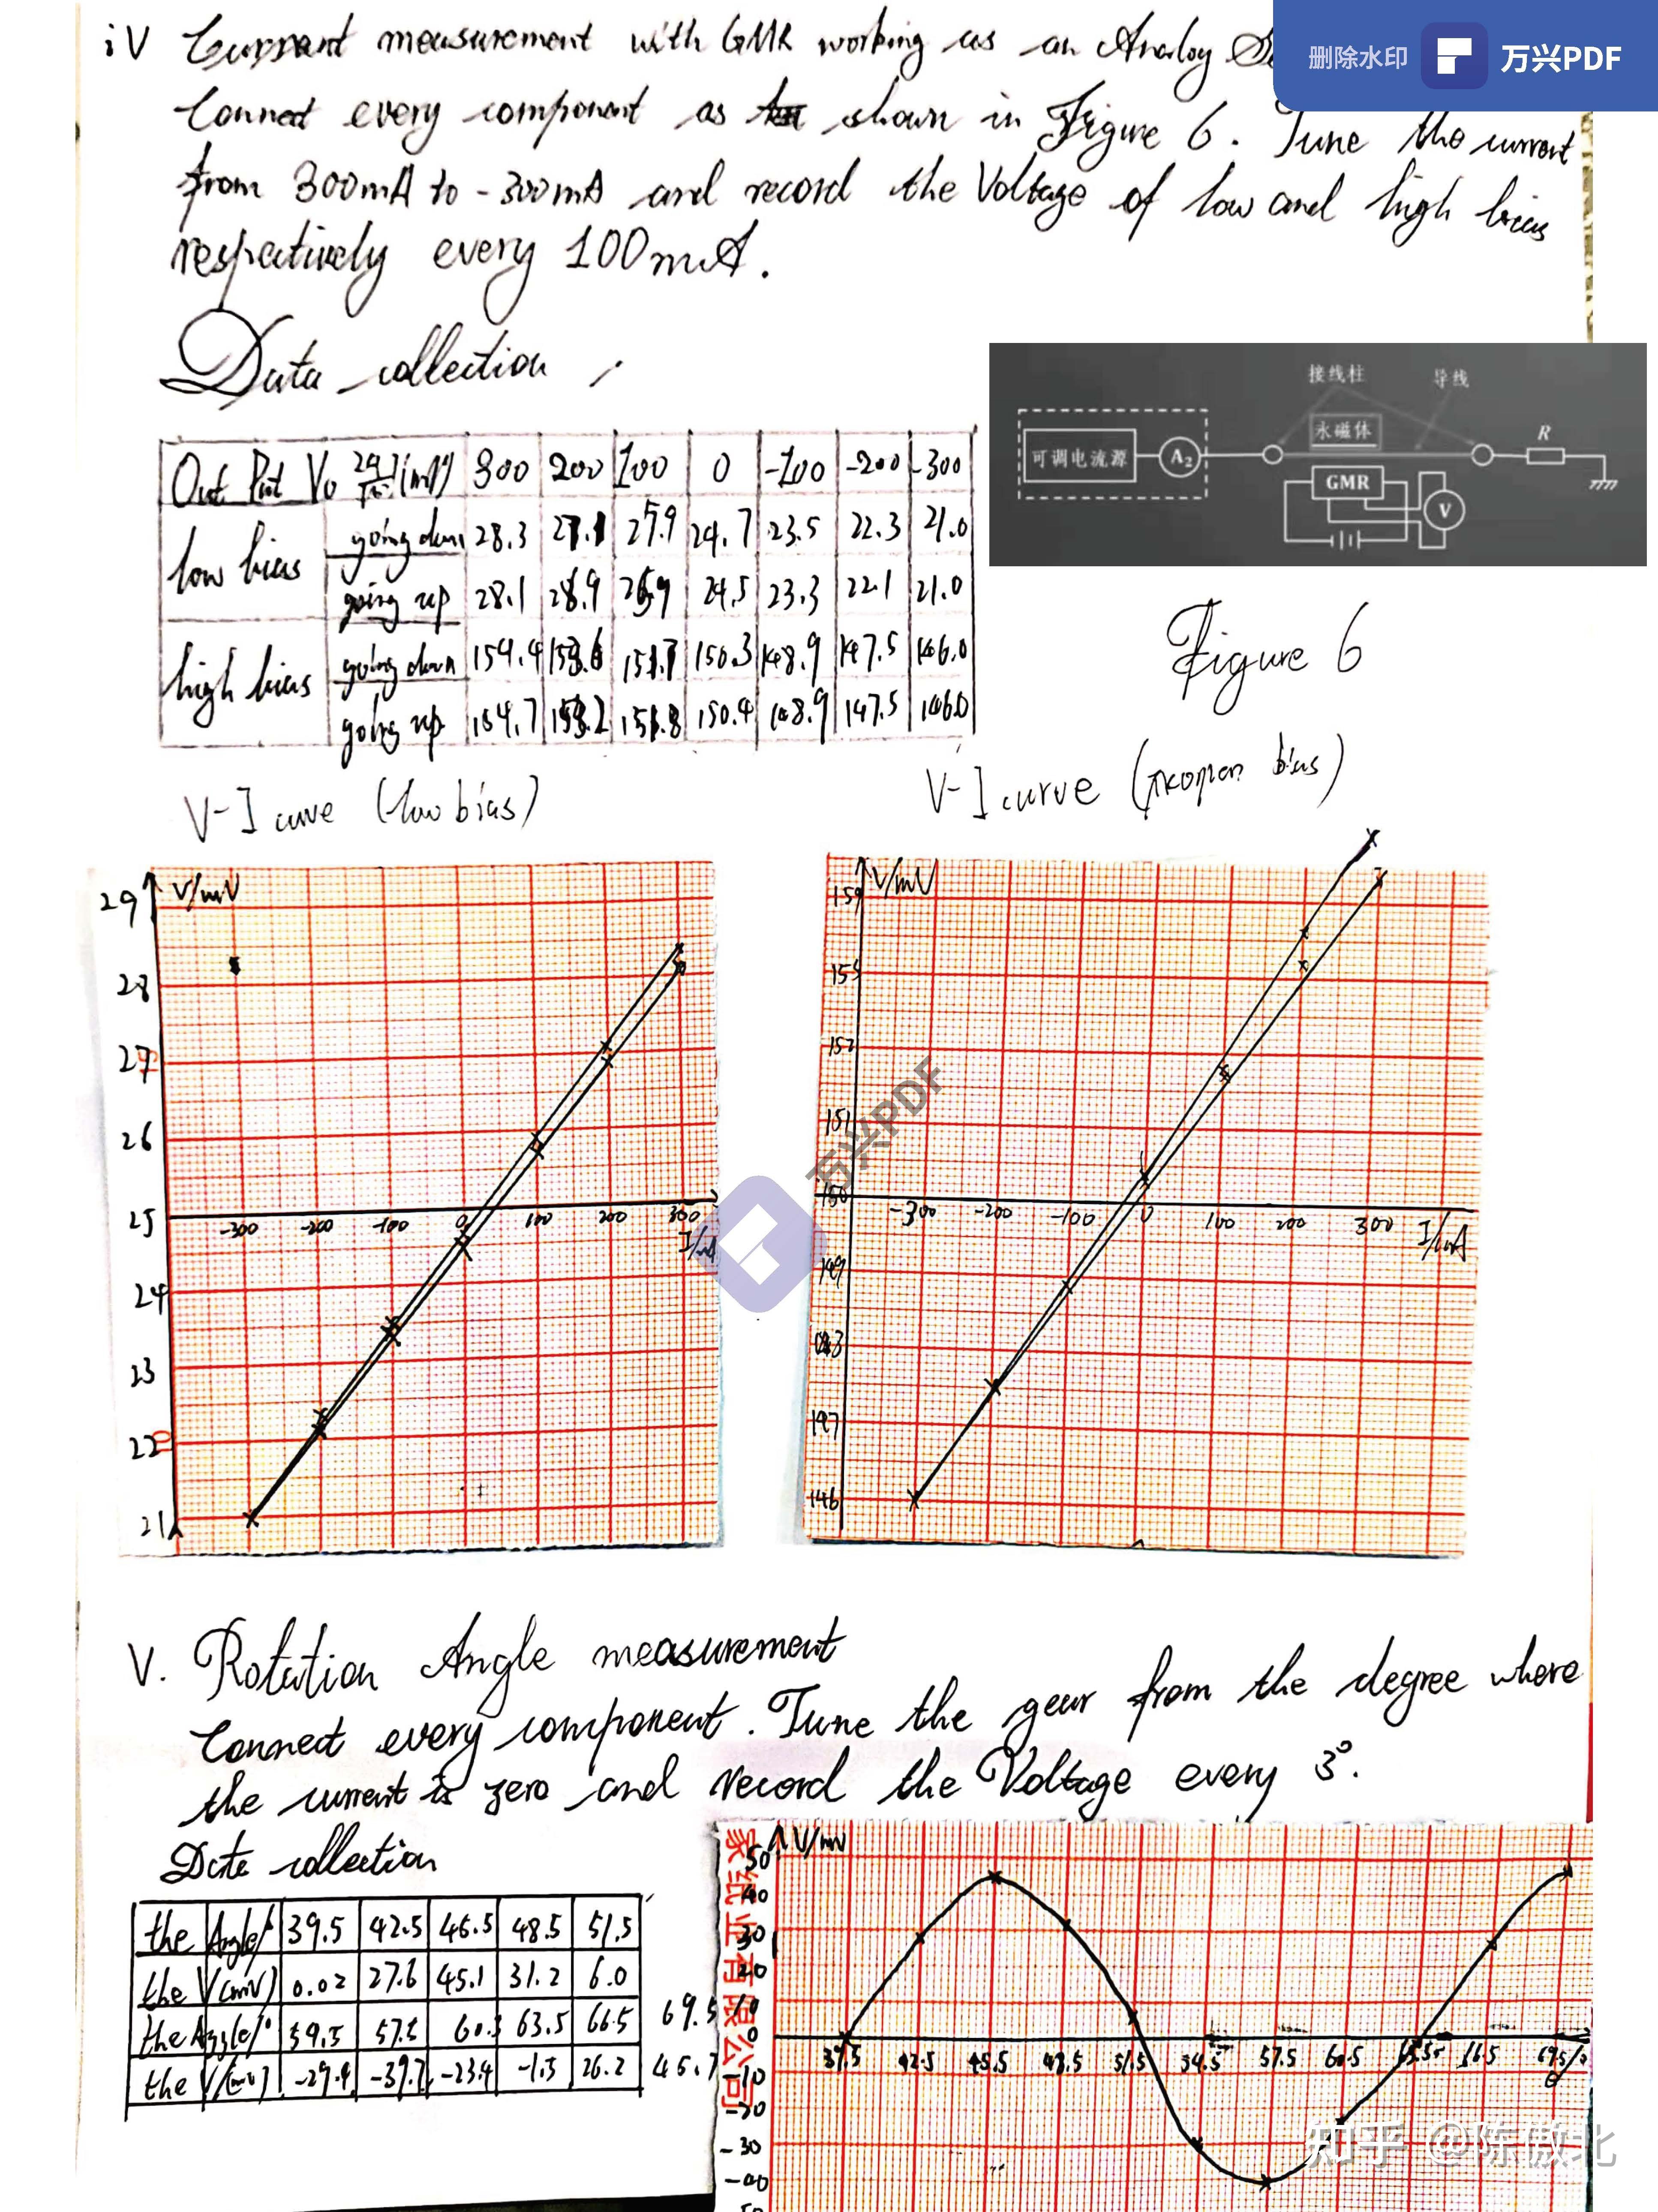 iV Current measurement with GMR working as an Analog
删除水印 万兴PDF
Connect every component as shown in Figure 6. Tune the current
from 300mA to -300mA and record the Voltage of low and high bias
respectively every 100mA.
Data collection
接线柱 导线
可调电流源 A₂ 永磁体 R
GMR V
Figure 6
Out Put V₀ (mV) 300 200 100 0 -100 -200 -300
low bias going down 28.3 27.1 25.9 24.7 23.5 22.3 21.0
going up 28.1 26.9 24.5 23.3 22.1 21.0
high bias going down 154.4 151.7 150.3 148.9 147.5 146.0
going up 154.7 153.2 151.8 150.4 148.9 147.5 146.0
V-I curve (low bias)
V-I curve ( bias)
V/mV
29
28
27
26
25
24
23
22
21
-300 -200 -100 0 100 200 300
I/mA
V/mV
153
152
151
150
149
147
146
-300 -200 -100 0 100 200 300
I/mA
万兴PDF
V. Rotation Angle measurement
Connect every component. Tune the gear from the degree where
the current is zero and record the Voltage every 3°.
Date collection
the Angle/° 39.5 42.5 48.5 51.5
the V(mV) 0.02 27.6 45.1 31.2 6.0
the Angle/° 63.5 66.5 69.5
the V/(mV) -29.4 -39.7 -23.4 -1.3 26.2 45.7
家纸业有限公司
V/mV
50
40
30
20
10
0
-10
-20
-30
-40
39.5 42.5 45.5 48.5 51.5 54.5 57.5 60.5 69.5
知乎 @陈傲北